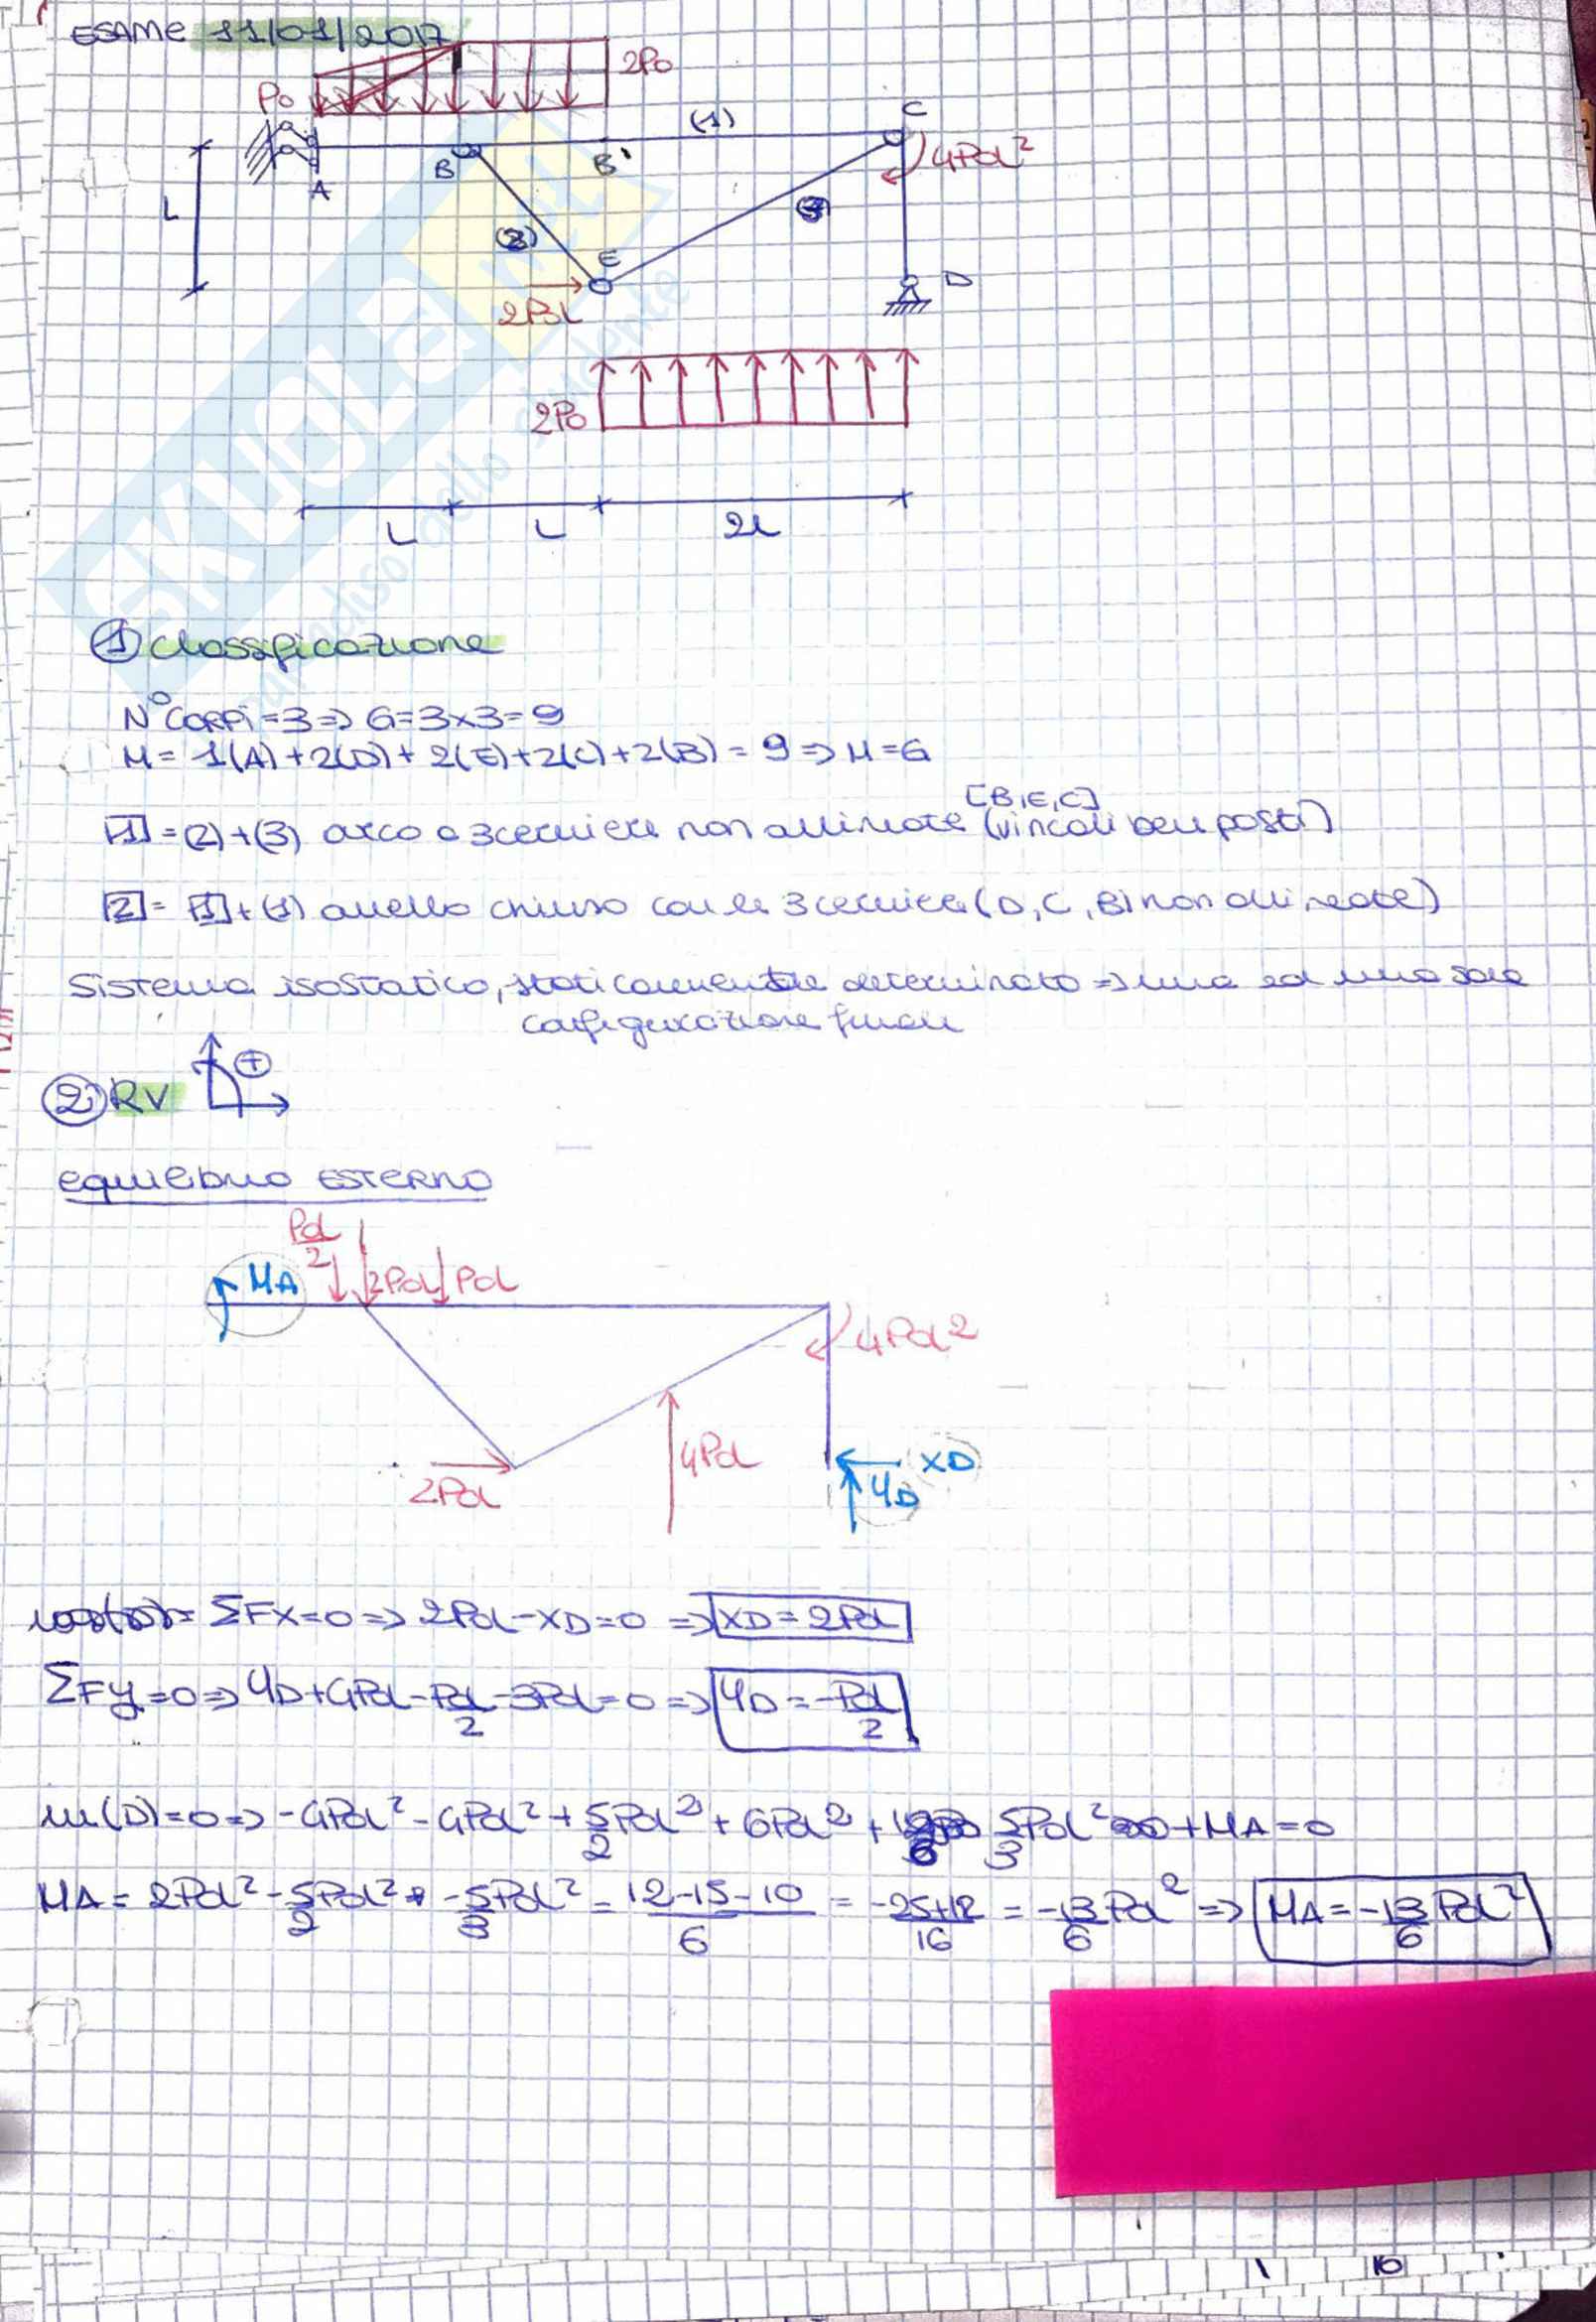 ESAME 11/01/2017
2Po
Po
(1)
C
4PoL²
B
B'
A
L
(2)
(3)
E
D
2PoL
2Po
L L 2L
SKUOLA.net
① Classificazione
N° CORPI = 3 => G = 3x3 = 9
M = 1(A) + 2(D) + 2(E) + 2(C) + 2(B) = 9 => M = G
[B,E,C]
[1] = (2)+(3) arco a 3 cerniere non allineate (vincoli ben posti)
[2] = [1]+(1) anello chiuso con le 3 cerniere (D, C, B) non allineate)
Sistema isostatico, staticamente determinato => una ed una sola
configurazione
② RV +
equilibrio ESTERNO
PoL
2
MA 2PoL PoL
4PoL²
4PoL
XD
YD
2PoL
ΣFX=0 => 2PoL - XD = 0 => XD = 2PoL
ΣFy=0 => YD + 4PoL - PoL/2 - 3PoL = 0 => YD = -PoL/2
m(D)=0 => -4PoL² - 4PoL² + 5/2 PoL² + 6PoL² + 5/3 PoL² + MA = 0
MA = 2PoL² - 5/2 PoL² - 5/3 PoL² = 12-15-10/6 = -25+12/16 = -13/6 PoL² => MA = -13/6 PoL²
10